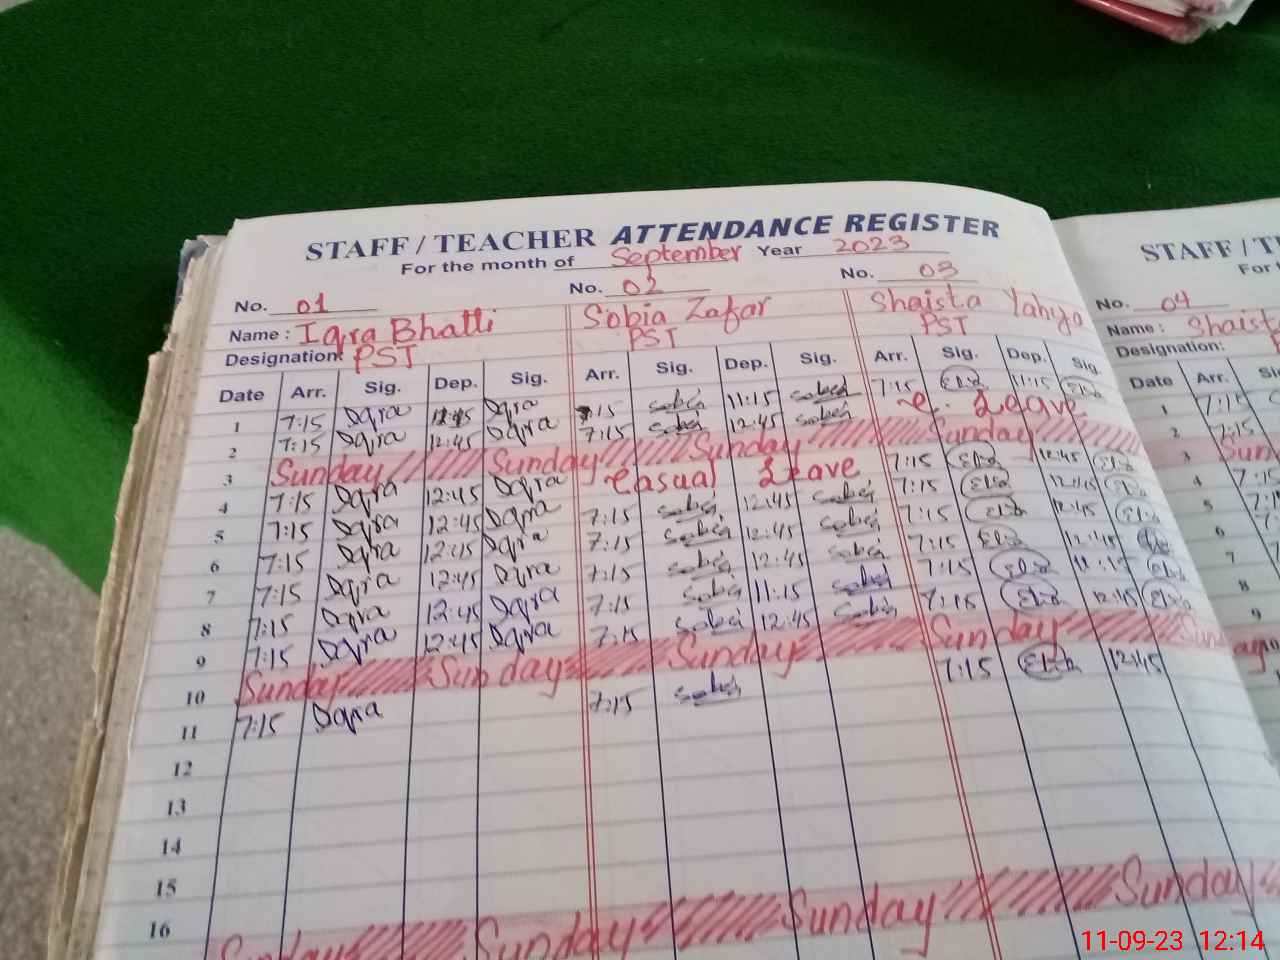 STAFF / TEACHER ATTENDANCE REGISTER
For the month of September Year 2023
No. 01 No. 02 No. 03
Name : Iqra Bhatti Sobia Zafar Shaista Yahya
Designation: PST PST PST
Date Arr. Sig. Dep. Sig. Arr. Sig. Dep. Sig. Arr. Sig. Dep. Sig.
1 7:15 Iqra Iqra 7:15 11:15 7:15 11:15
2 7:15 Iqra 12:45 Iqra 7:15 12:45 C. Leave
3 Sunday Sunday Sunday Sunday
4 7:15 Iqra 12:45 Iqra Casual Leave 7:15 12:45
5 7:15 Iqra 12:45 Iqra 7:15 12:45 7:15 12:45
6 7:15 Iqra 12:45 Iqra 7:15 12:45 7:15 12:45
7 7:15 Iqra 12:45 Iqra 7:15 12:45 7:15 12:45
8 7:15 Iqra 12:45 Iqra 7:15 11:15 7:15 11:15
9 7:15 Iqra 12:45 Iqra 7:15 12:45 7:15 12:45
10 Sunday Sunday Sunday Sunday
11 7:15 Iqra 7:15 7:15 12:45
12
13
14
15
16
Sunday Sunday Sunday Sunday
STAFF / T
For t
No. 04
Name : Shaist
Designation:
Date Arr. Si
1 7:15
2 7:15
3 Sun
4 7:15
5
6
7
8
9
11-09-23 12:14